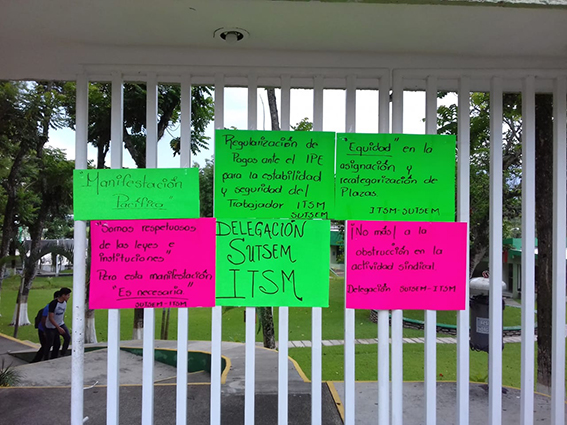 "Manifestación
Pacífica"
Regularización de
Pagos ante el IPE
para la estabilidad
y seguridad del
Trabajador ITSM
SUTSEM
"Equidad" en la
asignación y
recategorización de
Plazas.
ITSM-SUTSEM
"Somos respetuosos
de las leyes e
instituciones"
Pero esta manifestación
"Es necesaria"
SUTSEM-ITSM
DELEGACIÓN
SUTSEM
ITSM
¡No más! a la
obstrucción en la
actividad sindical
Delegación SUTSEM-ITSM